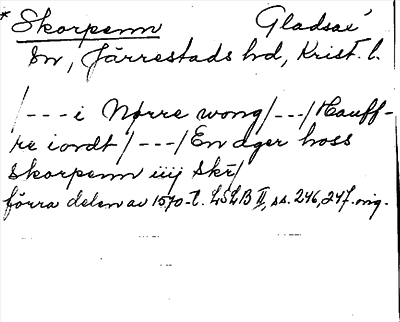 * Skorpenn Gladsax'
sn, Järrestads hd, Krist. l.
/---i Nørre wong/---/Hauff-
re iordt/---/En ager hoss
Skorpenn iiij Skr/
förra delen av 1570-t. LSLB II, ss. 246, 247. orig.